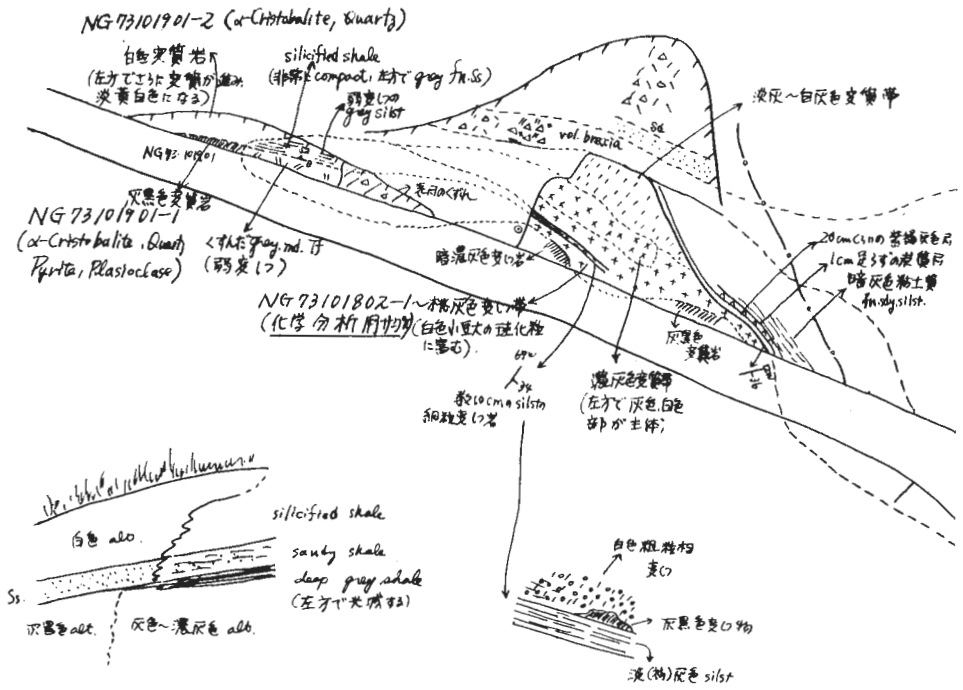 NG73101901-2 (α-Cristobalite, Quartz)
白色変質岩
(左方でさらに変質が進み
淡黄白色になる)
silicified shale
(非常に compact, 左方で grey fn. Ss)
弱変しつの
grey silst
淡灰～白灰色変質帯
vol. brexia
Sd.
NG73101901
灰黒色変質岩
NG73101901-1
(α-Cristobalite, Quartz
Pyrite, Plasiockase)
くすんだ grey. md. tf
(弱変しつ)
暗濃灰色変しつ岩
NG73101802-1～
灰色変しつ帯
(化学分析用サンプル)
(白色小豆大の珪化粒
に富む).
灰黒色
変質岩
20cm
1cm足らずの炭質局
暗灰色粘土質
fn. sdy. silst.
34
数10cmの silstの
細粒変しつ岩
濃灰色変質帯
(左方で灰色, 白色
部が主体)
白色 alt.
silicified shale
sandy shale
deep grey shale
(左方で尖滅する)
Ss.
灰黒色 alt.
灰色～濃灰色 alt.
白色粗粒相
変しつ
灰黒色変しつ物
灰色 silst